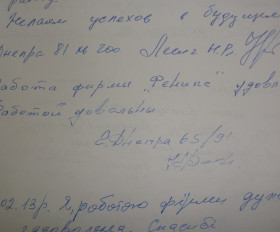 Желаем успехов в будущем
Днепра 81 кв 200
Работа фирмы „Феникс" удовл
Работой довольны
Днепра 65/91
02.13р. Я, роботою фірми дуже
задоволена. Спасибі